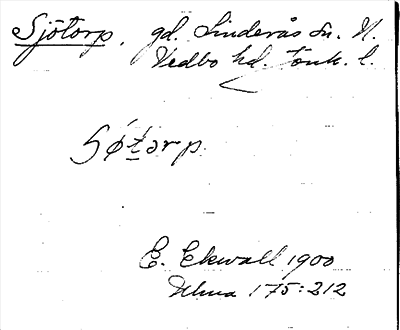 Sjötorp, gd. Linderås sn. N.
Vedbo hd. Jönk. l.
Sǿt̠ərp.
E. Ekwall 1900
Ulma 175:212